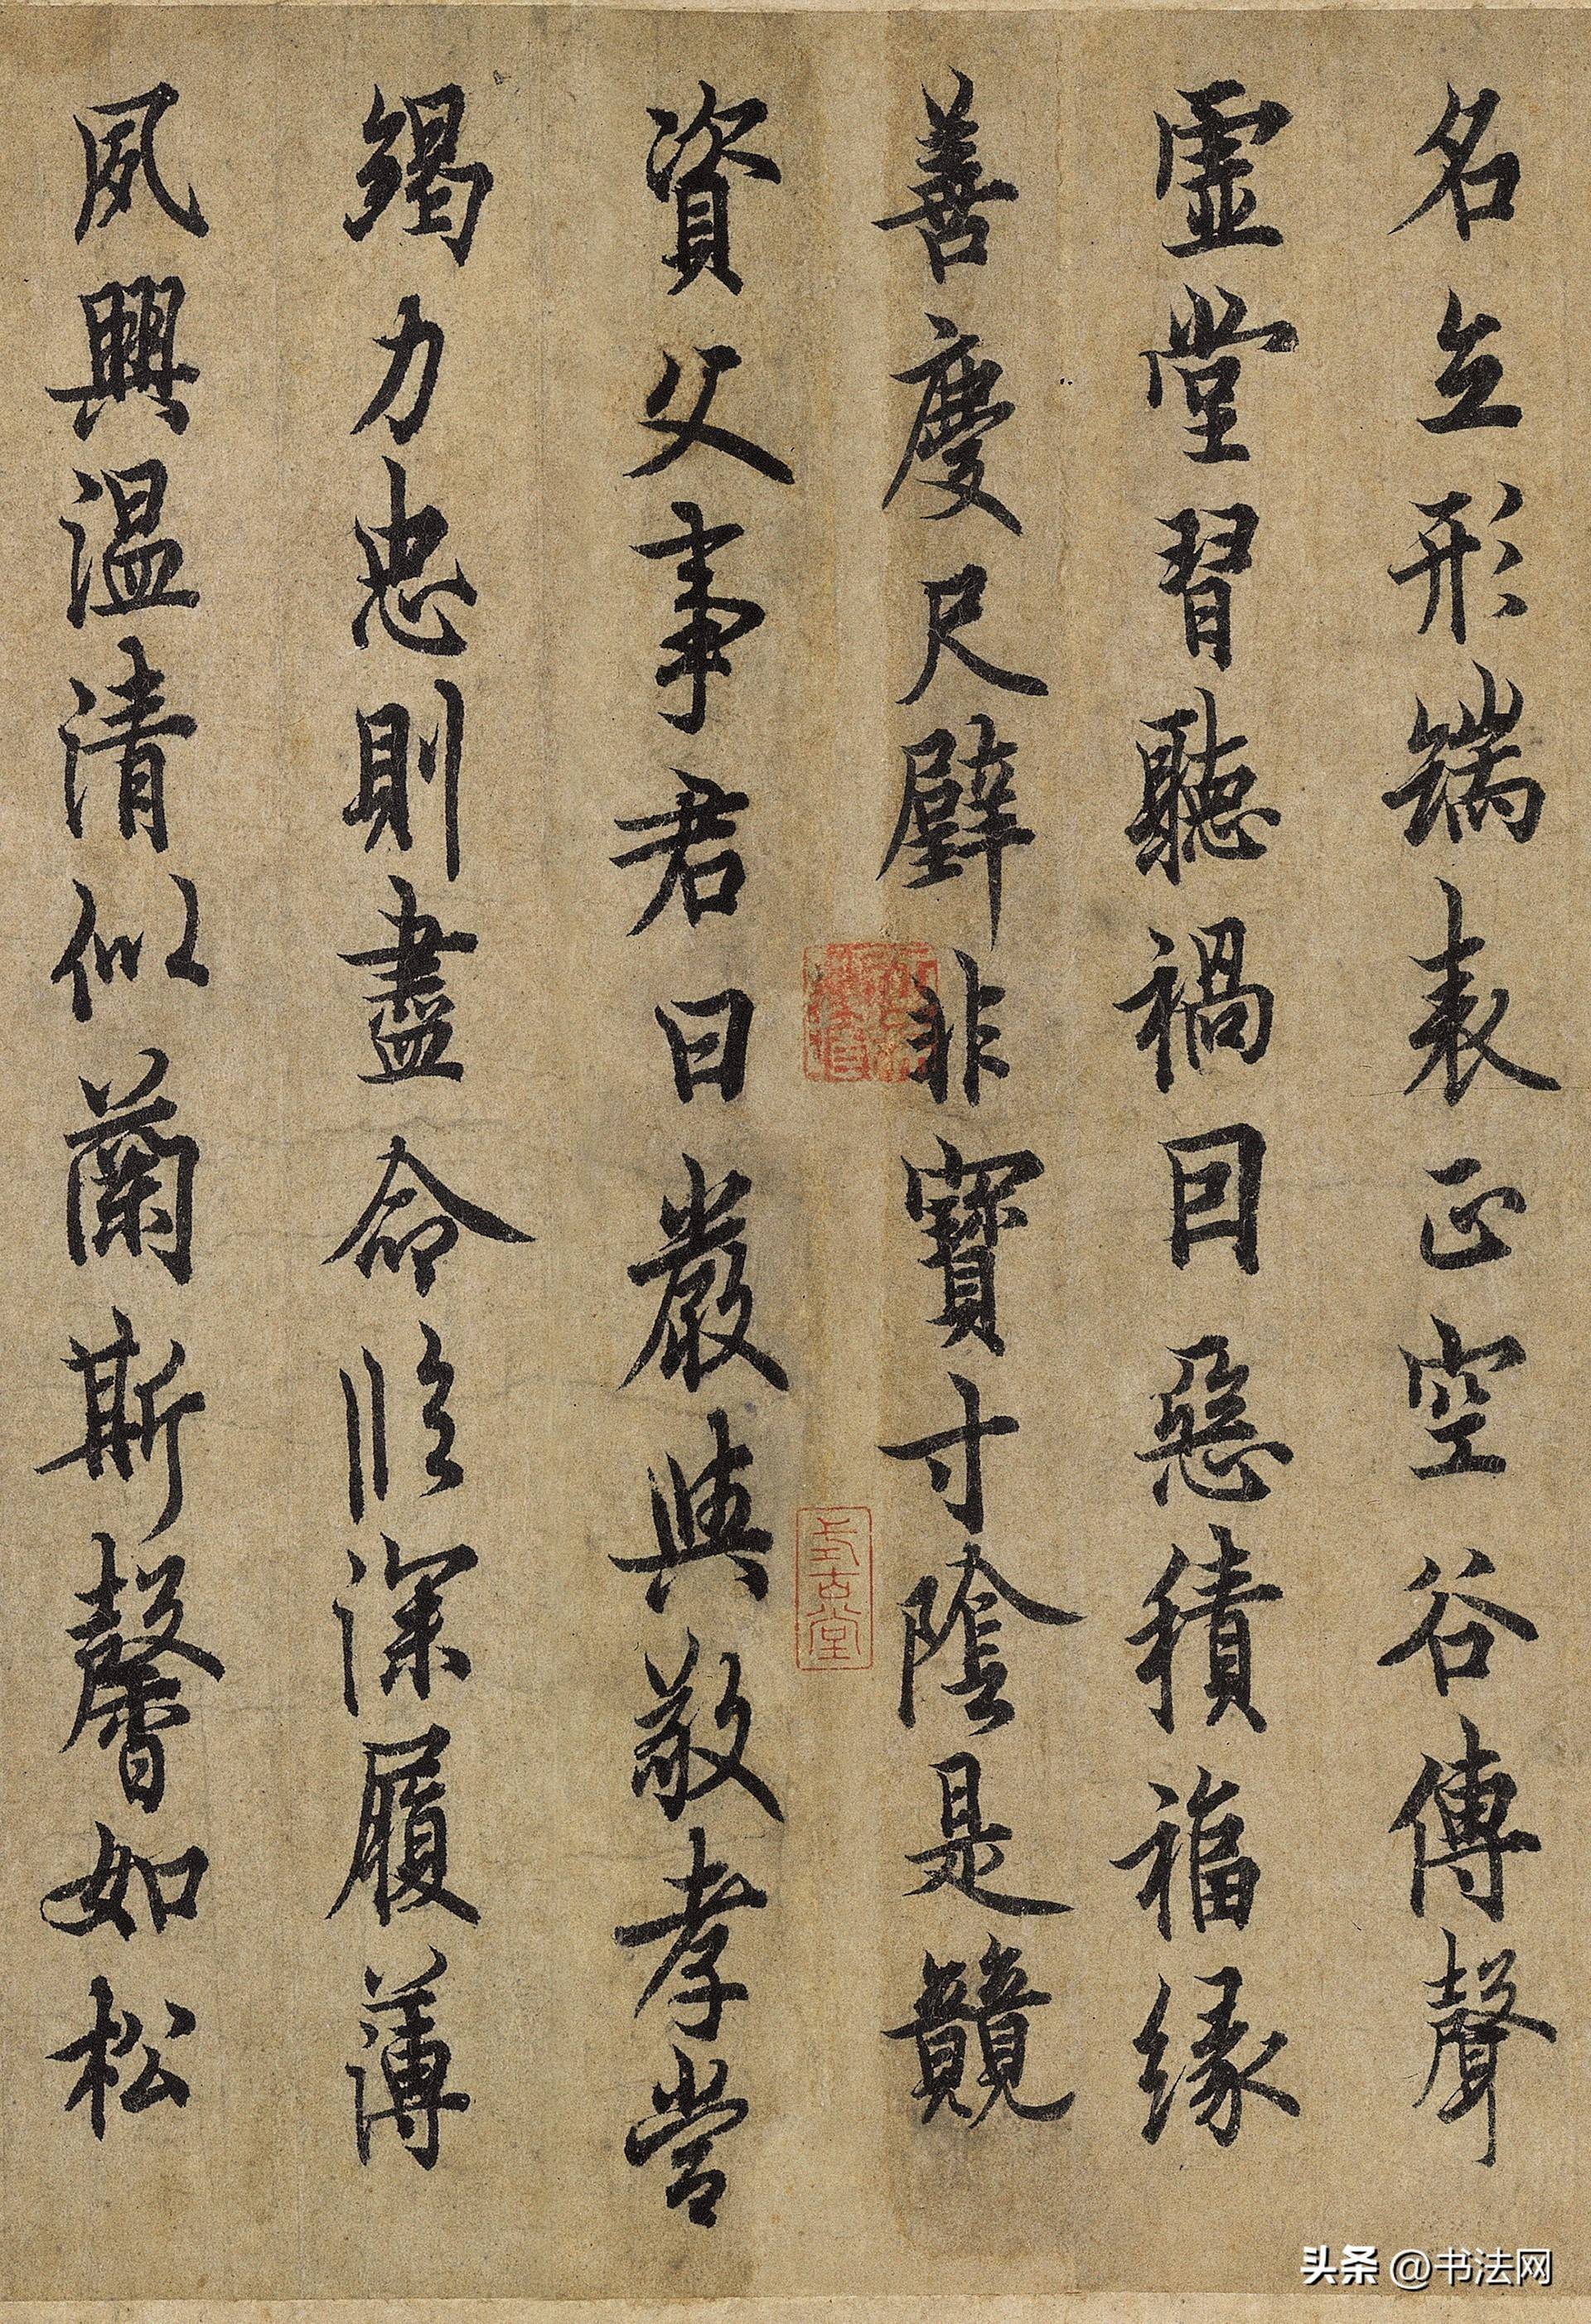 名立形端表正空谷傳聲
虛堂習聽禍因惡積福緣
善慶尺璧非寶寸陰是競
資父事君曰嚴與敬孝當
竭力忠則盡命臨深履薄
夙興溫清似蘭斯馨如松
式古堂
头条 @书法网